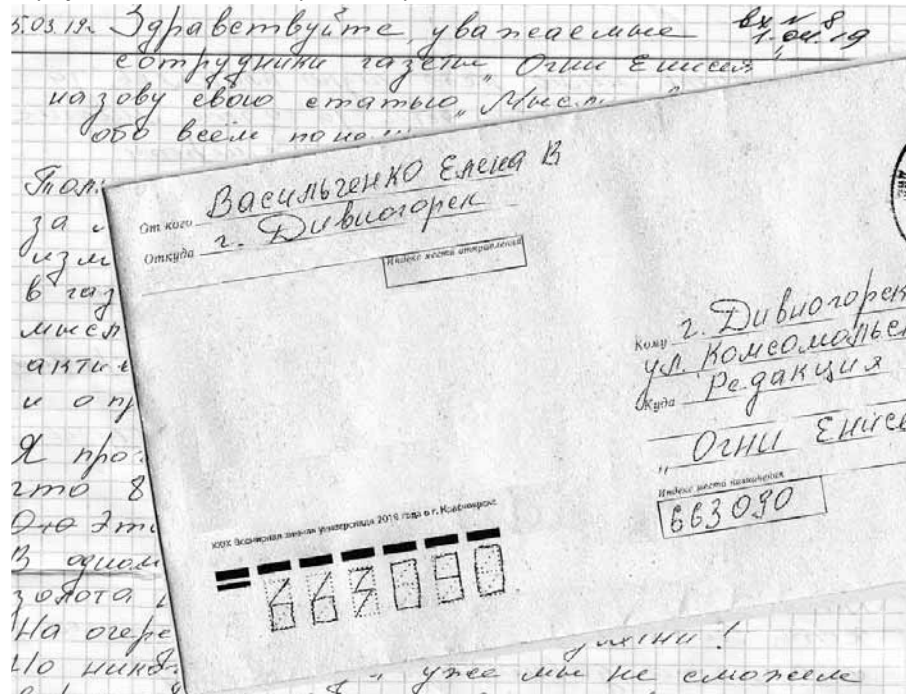 5.03.19г. Здравствуйте, уважаемые
вх № 8
1.04.19
сотрудники газеты „Огни Енисея"
назову свою статью „Мысли
обо всём
за
изм
в газ
мысл
акти
и о пр
Я про
что 8
Это эти
В одном
золота
На очере
Но ник
жизни!
уже мы не сможем
От кого Васильченко Елена В
Откуда г. Дивногорск
Индекс места отправления
Кому г. Дивногорск
ул. Комсомольс
Куда Редакция
„Огни Енисе
Индекс места назначения
663090
XXIX Всемирная зимняя универсиада 2019 года в г. Красноярске
663090